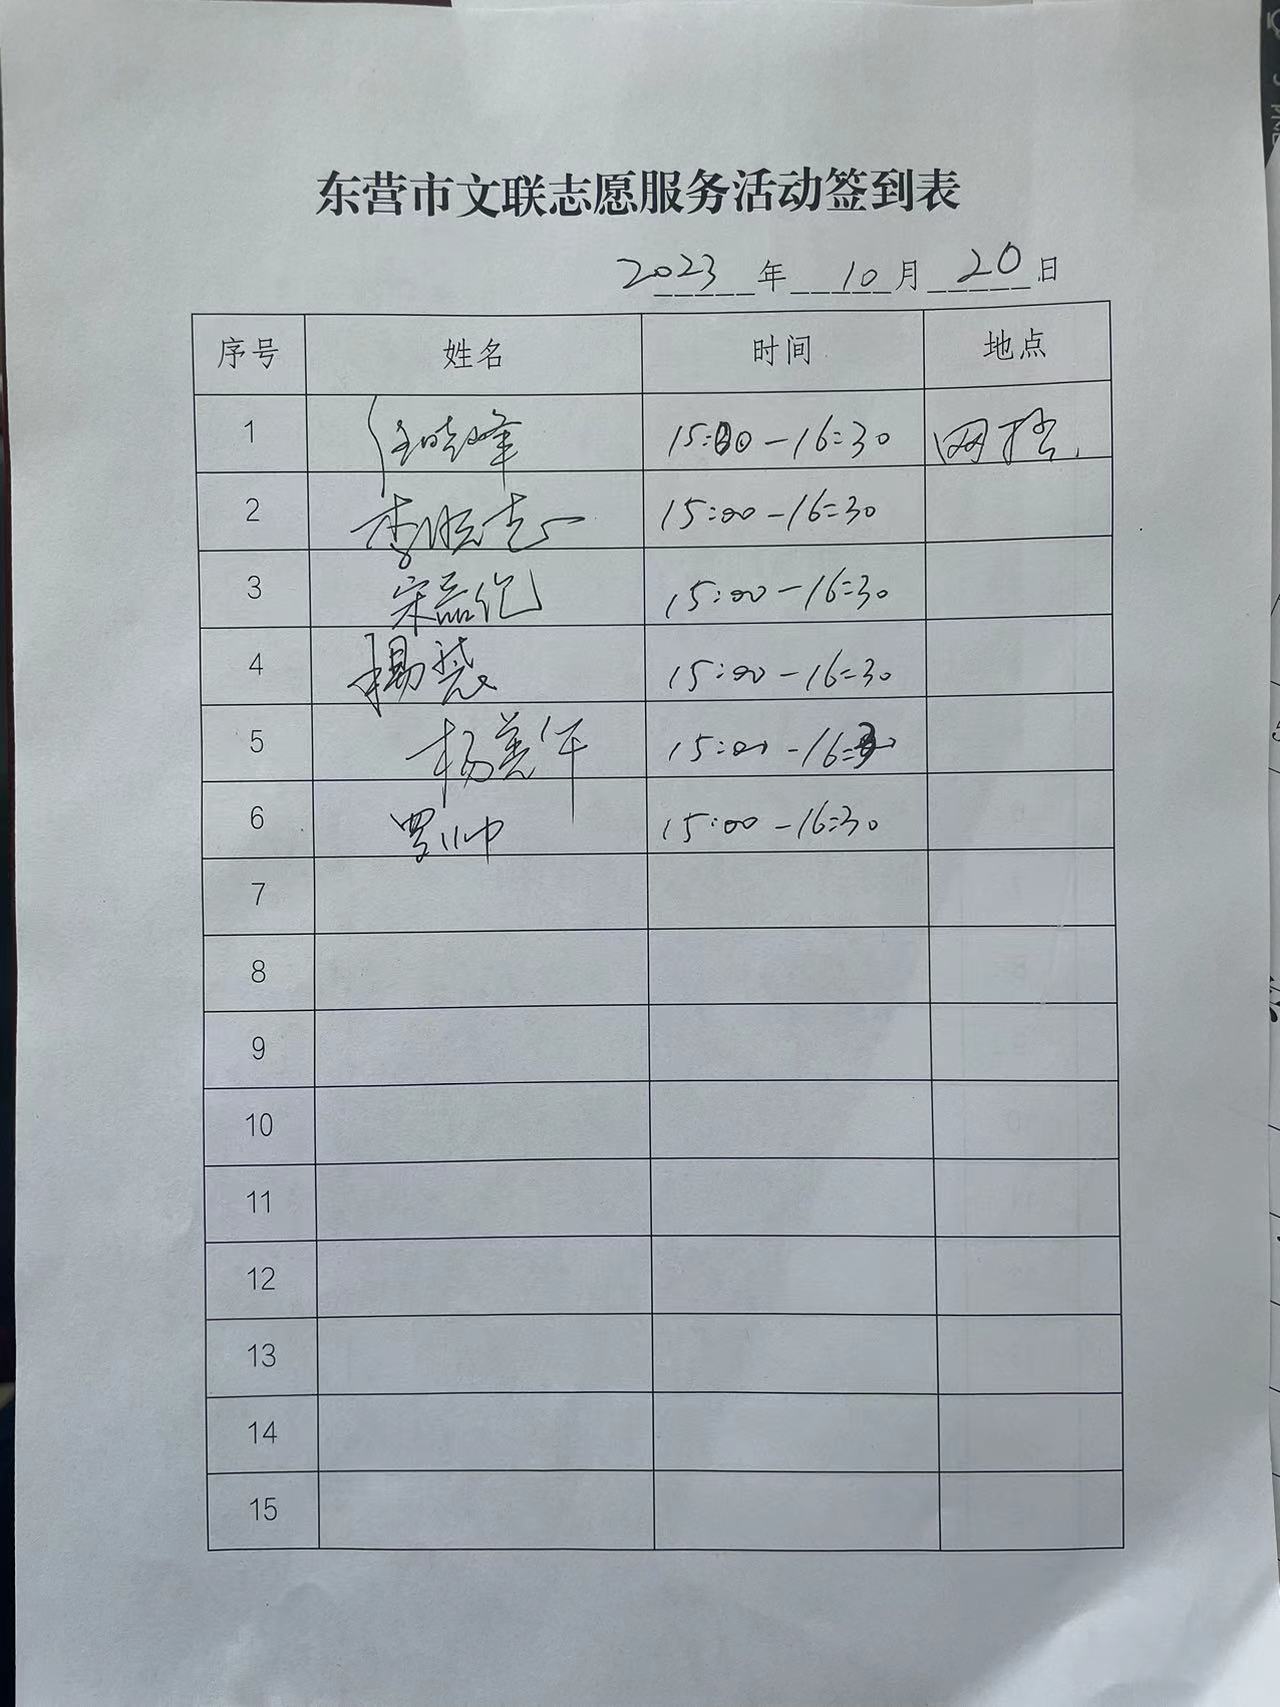 东营市文联志愿服务活动签到表
2023年 10月 20日
序号 姓名 时间 地点
1 任晓峰 15:00-16:30
2 李 志 15:00-16:30
3 宋品伦 15:00-16:30
4 杨慧 15:00-16:30
5 杨美午 15:00-16:30
6 罗帅 15:00-16:30
7
8
9
10
11
12
13
14
15